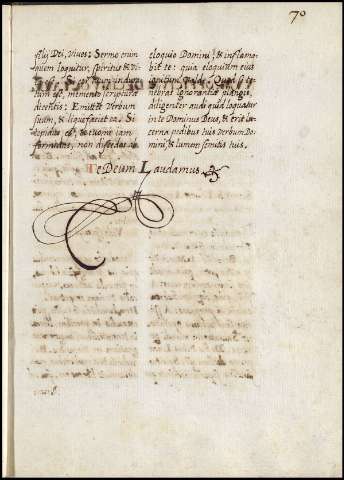 70
filij Dei, vives: Sermo enim
quem loquitur, spiritus & vi-
tum est, memento scripturæ
dicentis: Emitte Verbum
suum, & liquefaciet ea. Si
tepidus es, & evome iam
formidas, non discedas ab
eloquio Domini, & inflama-
bit te: quia eloquium eius
ignitum valde. Quod si te-
nebras ignorantiæ plangis,
diligenter audi quid loquatur
in te Dominus Deus, & erit lu-
cerna pedibus tuis verbum Do-
mini, & lumen semitis tuis.
Te Deum Laudamus